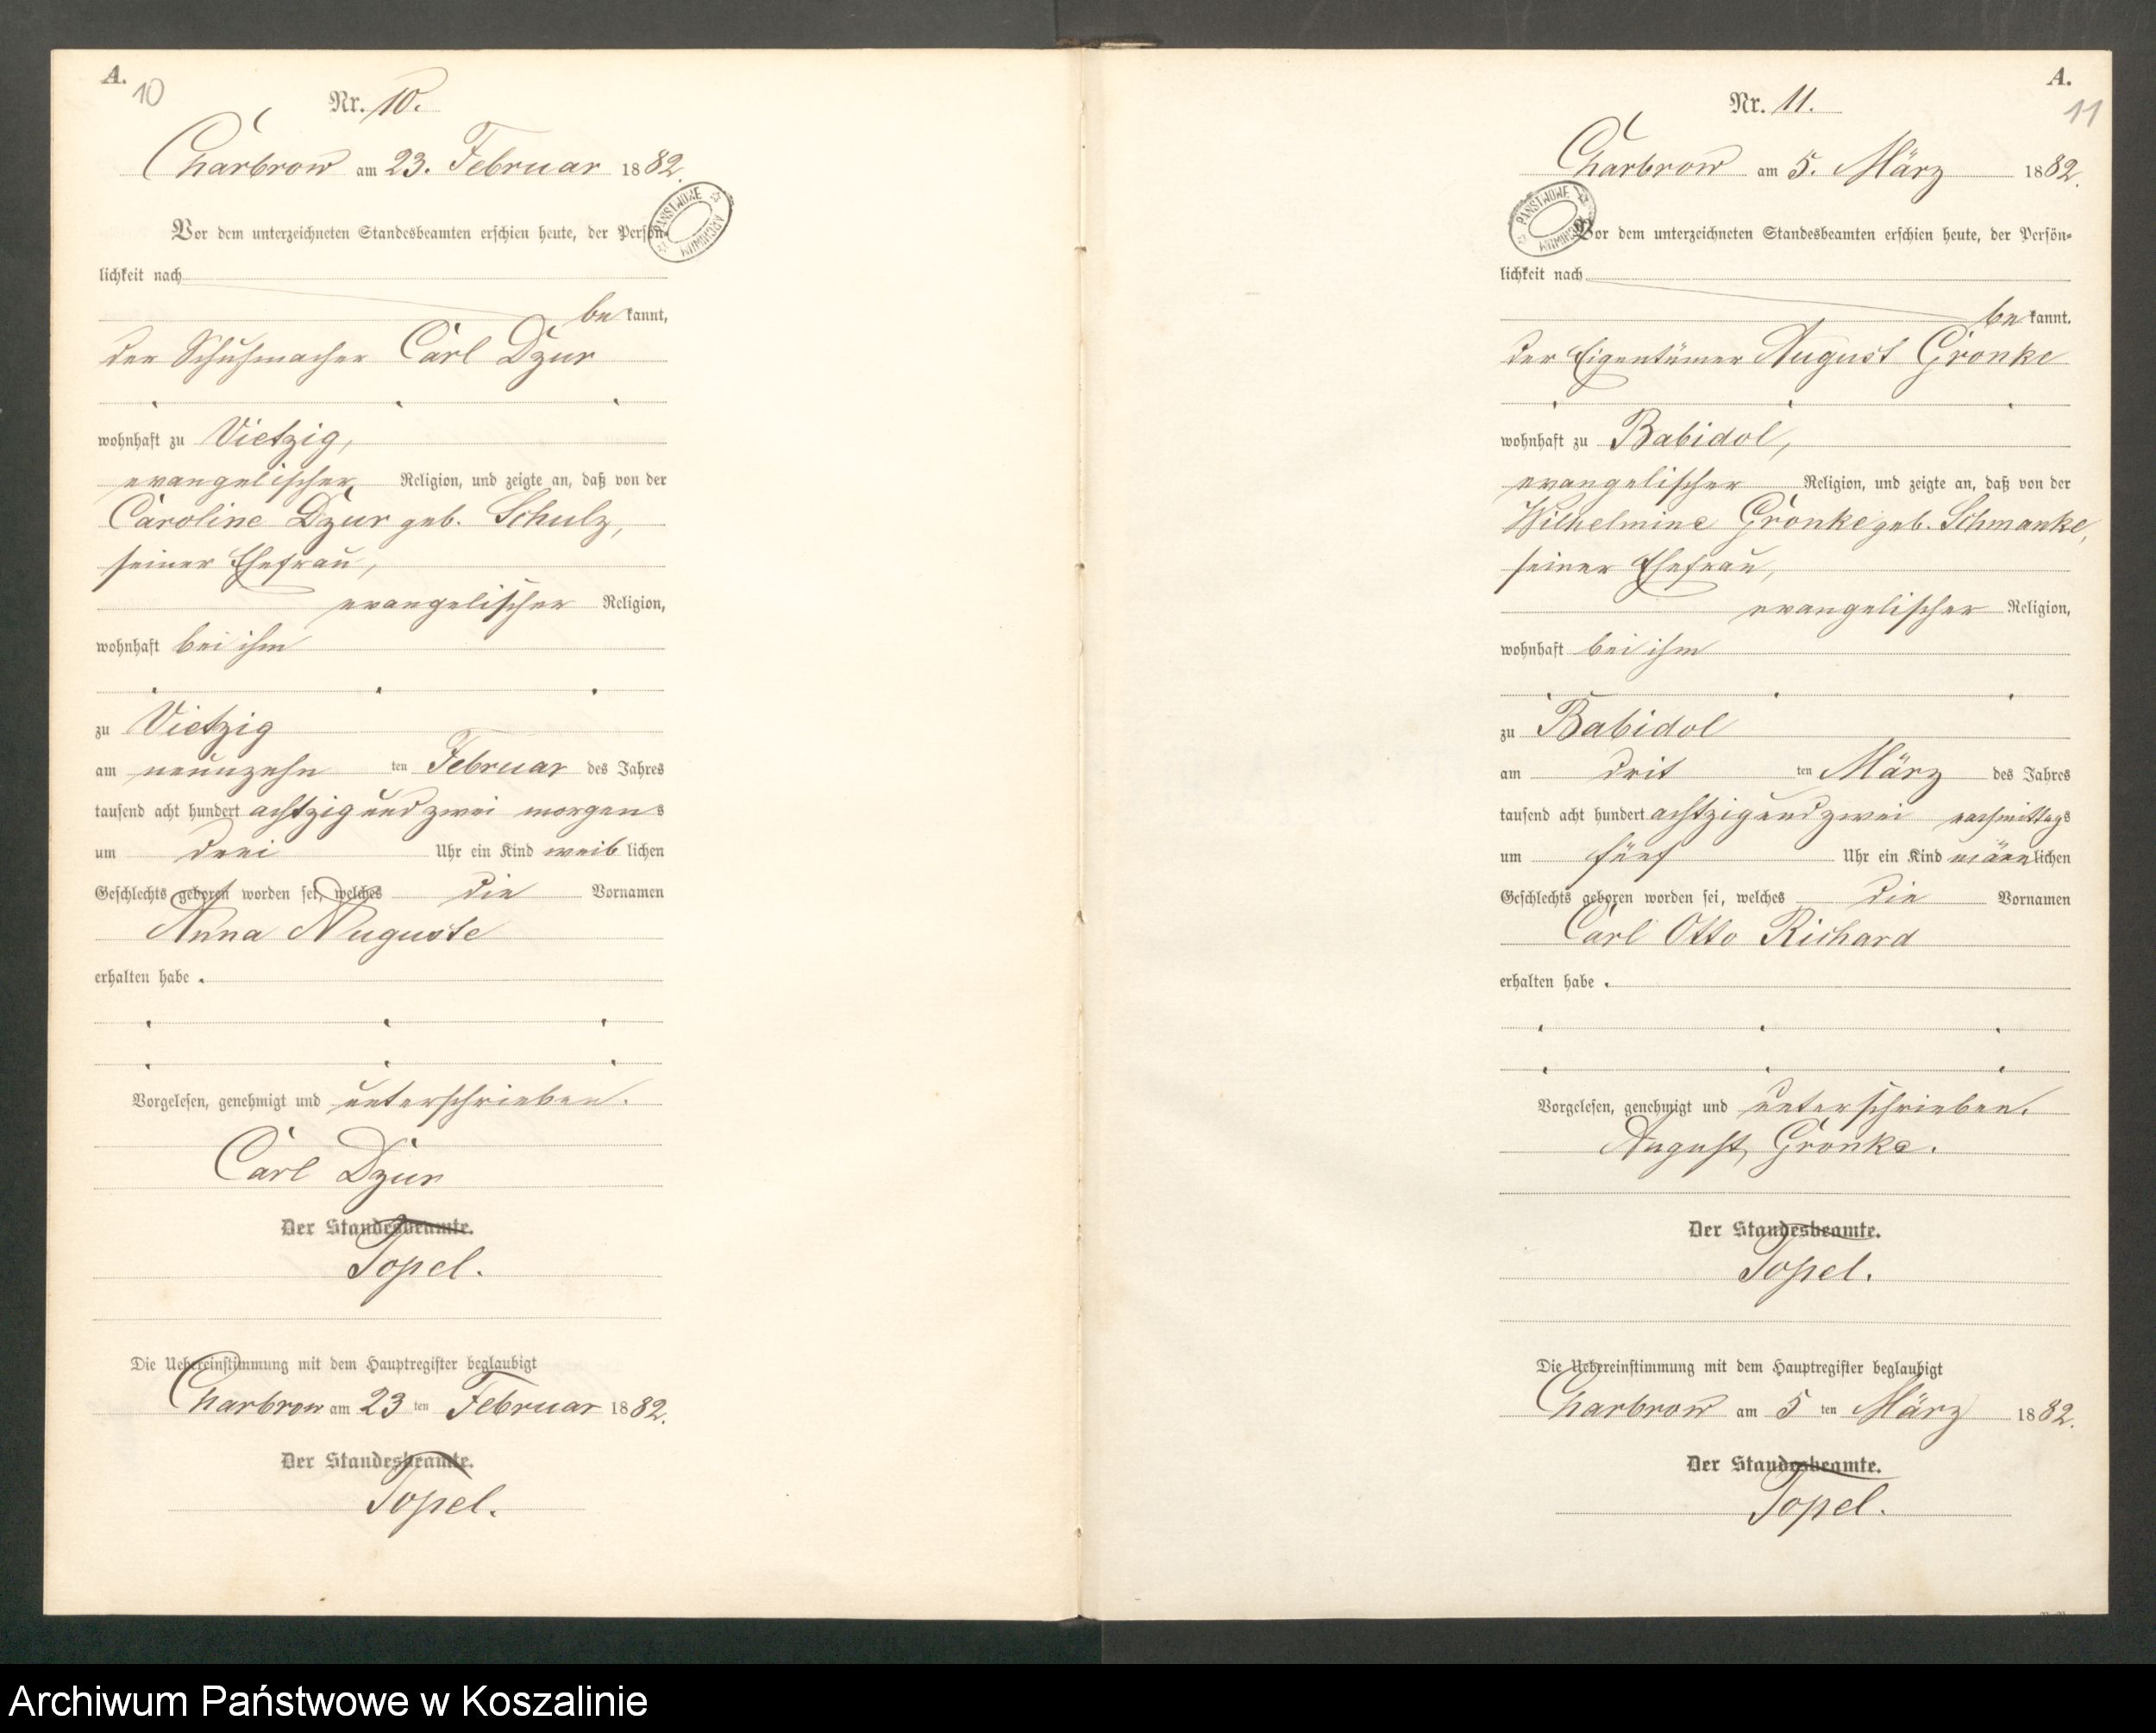 A.
10
Nr. 10.
Charbrow am 23. Februar 1882.
PAŃSTWOWE ARCHIWUM
Vor dem unterzeichneten Standesbeamten erschien heute, der Persön-
lichkeit nach
be kannt,
der Schuhmacher Carl Dzur
wohnhaft zu Vietzig,
evangelischer Religion, und zeigte an, daß von der
Caroline Dzur geb. Schulz,
seiner Ehefrau,
evangelischer Religion,
wohnhaft bei ihm
zu Vietzig
am neunzehn ten Februar des Jahres
tausend acht hundert achtzig und zwei morgens
um drei Uhr ein Kind weib lichen
Geschlechts geboren worden sei, welches die Vornamen
Anna Auguste
erhalten habe .
Vorgelesen, genehmigt und unterschrieben.
Carl Dzur
Der Standesbeamte.
Topel.
Die Uebereinstimmung mit dem Hauptregister beglaubigt
Charbrow am 23 ten Februar 1882.
Der Standesbeamte.
Topel.
A.
11
Nr. 11.
Charbrow am 5. März 1882.
PAŃSTWOWE ARCHIWUM
Vor dem unterzeichneten Standesbeamten erschien heute, der Persön-
lichkeit nach
be kannt.
der Eigentümer August Gronke
wohnhaft zu Babidol,
evangelischer Religion, und zeigte an, daß von der
Wilhelmine Gronke geb. Schmanke,
seiner Ehefrau,
evangelischer Religion,
wohnhaft bei ihm
zu Babidol
am drit ten März des Jahres
tausend acht hundert achtzig und zwei nachmittags
um fünf Uhr ein Kind männlichen
Geschlechts geboren worden sei, welches die Vornamen
Carl Otto Richard
erhalten habe .
Vorgelesen, genehmigt und unterschrieben.
August Gronke.
Der Standesbeamte.
Topel.
Die Uebereinstimmung mit dem Hauptregister beglaubigt
Charbrow am 5 ten März 1882.
Der Standesbeamte.
Topel.
Archiwum Państwowe w Koszalinie